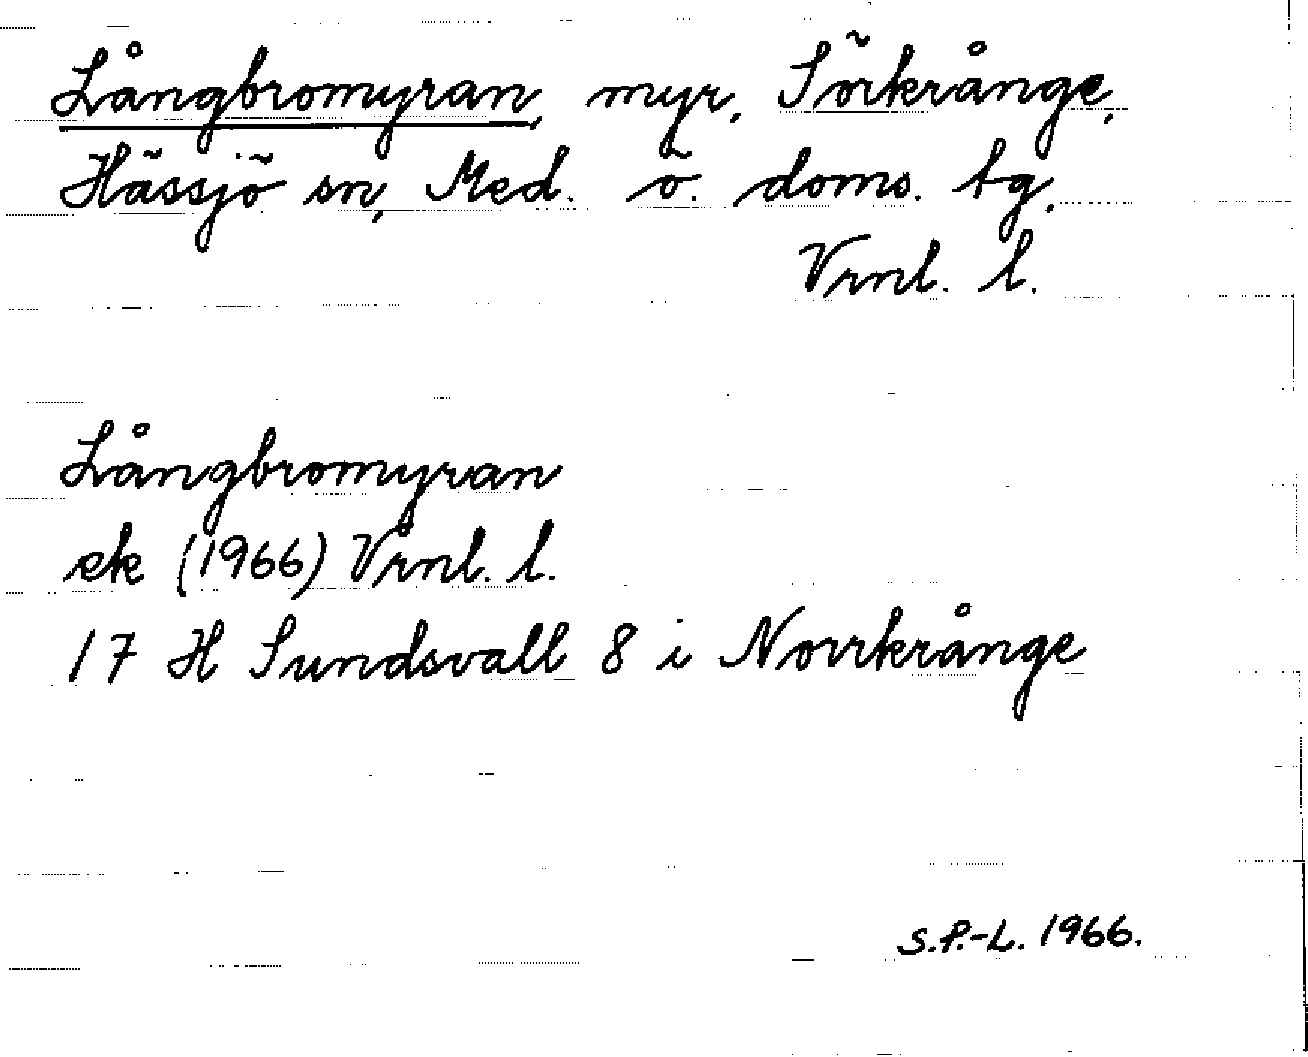 Långbromyran, myr, Sörkrånge,
Hässjö sn, Med. ö. doms. tg.
Vrml. l.
Långbromyran
ek (1966) Vrml. l.
17 H Sundsvall 8 i Norrkrånge
S.P.-L. 1966.